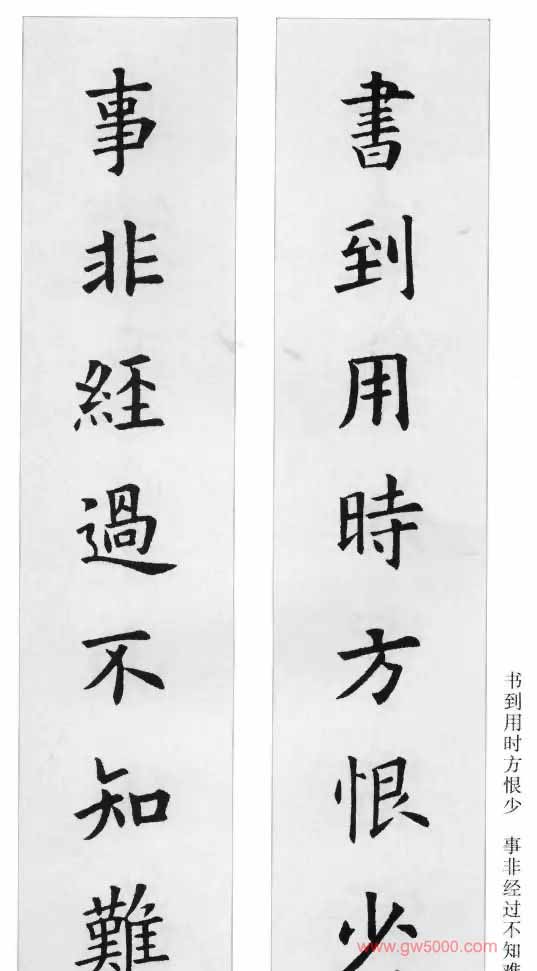 書到用時方恨少
事非經過不知難
书到用时方恨少 事非经过不知难
www.gw5000.com